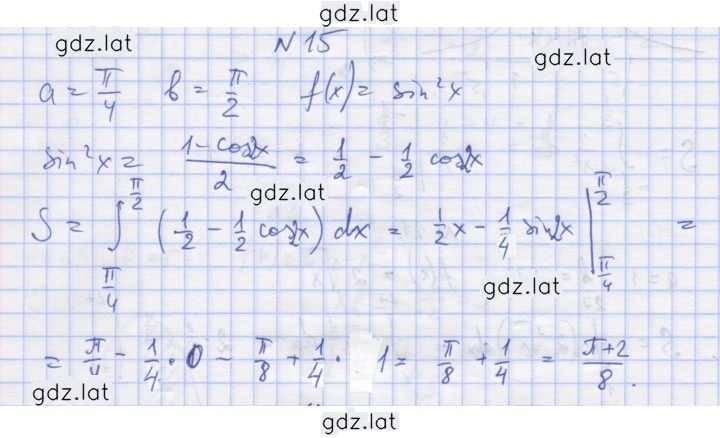 gdz.lat
N 15
gdz.lat gdz.lat
a = π/4 b = π/2 f(x) = sin²x
sin²x = (1 - cos2x)/2 = 1/2 - 1/2 cos2x
gdz.lat
S = ∫_{π/4}^{π/2} (1/2 - 1/2 cos2x) dx = 1/2 x - 1/4 sin2x |_{π/4}^{π/2} =
gdz.lat
= π/4 - 1/4 · 0 - π/8 + 1/4 · 1 = π/8 + 1/4 = (π+2)/8.
gdz.lat
gdz.lat